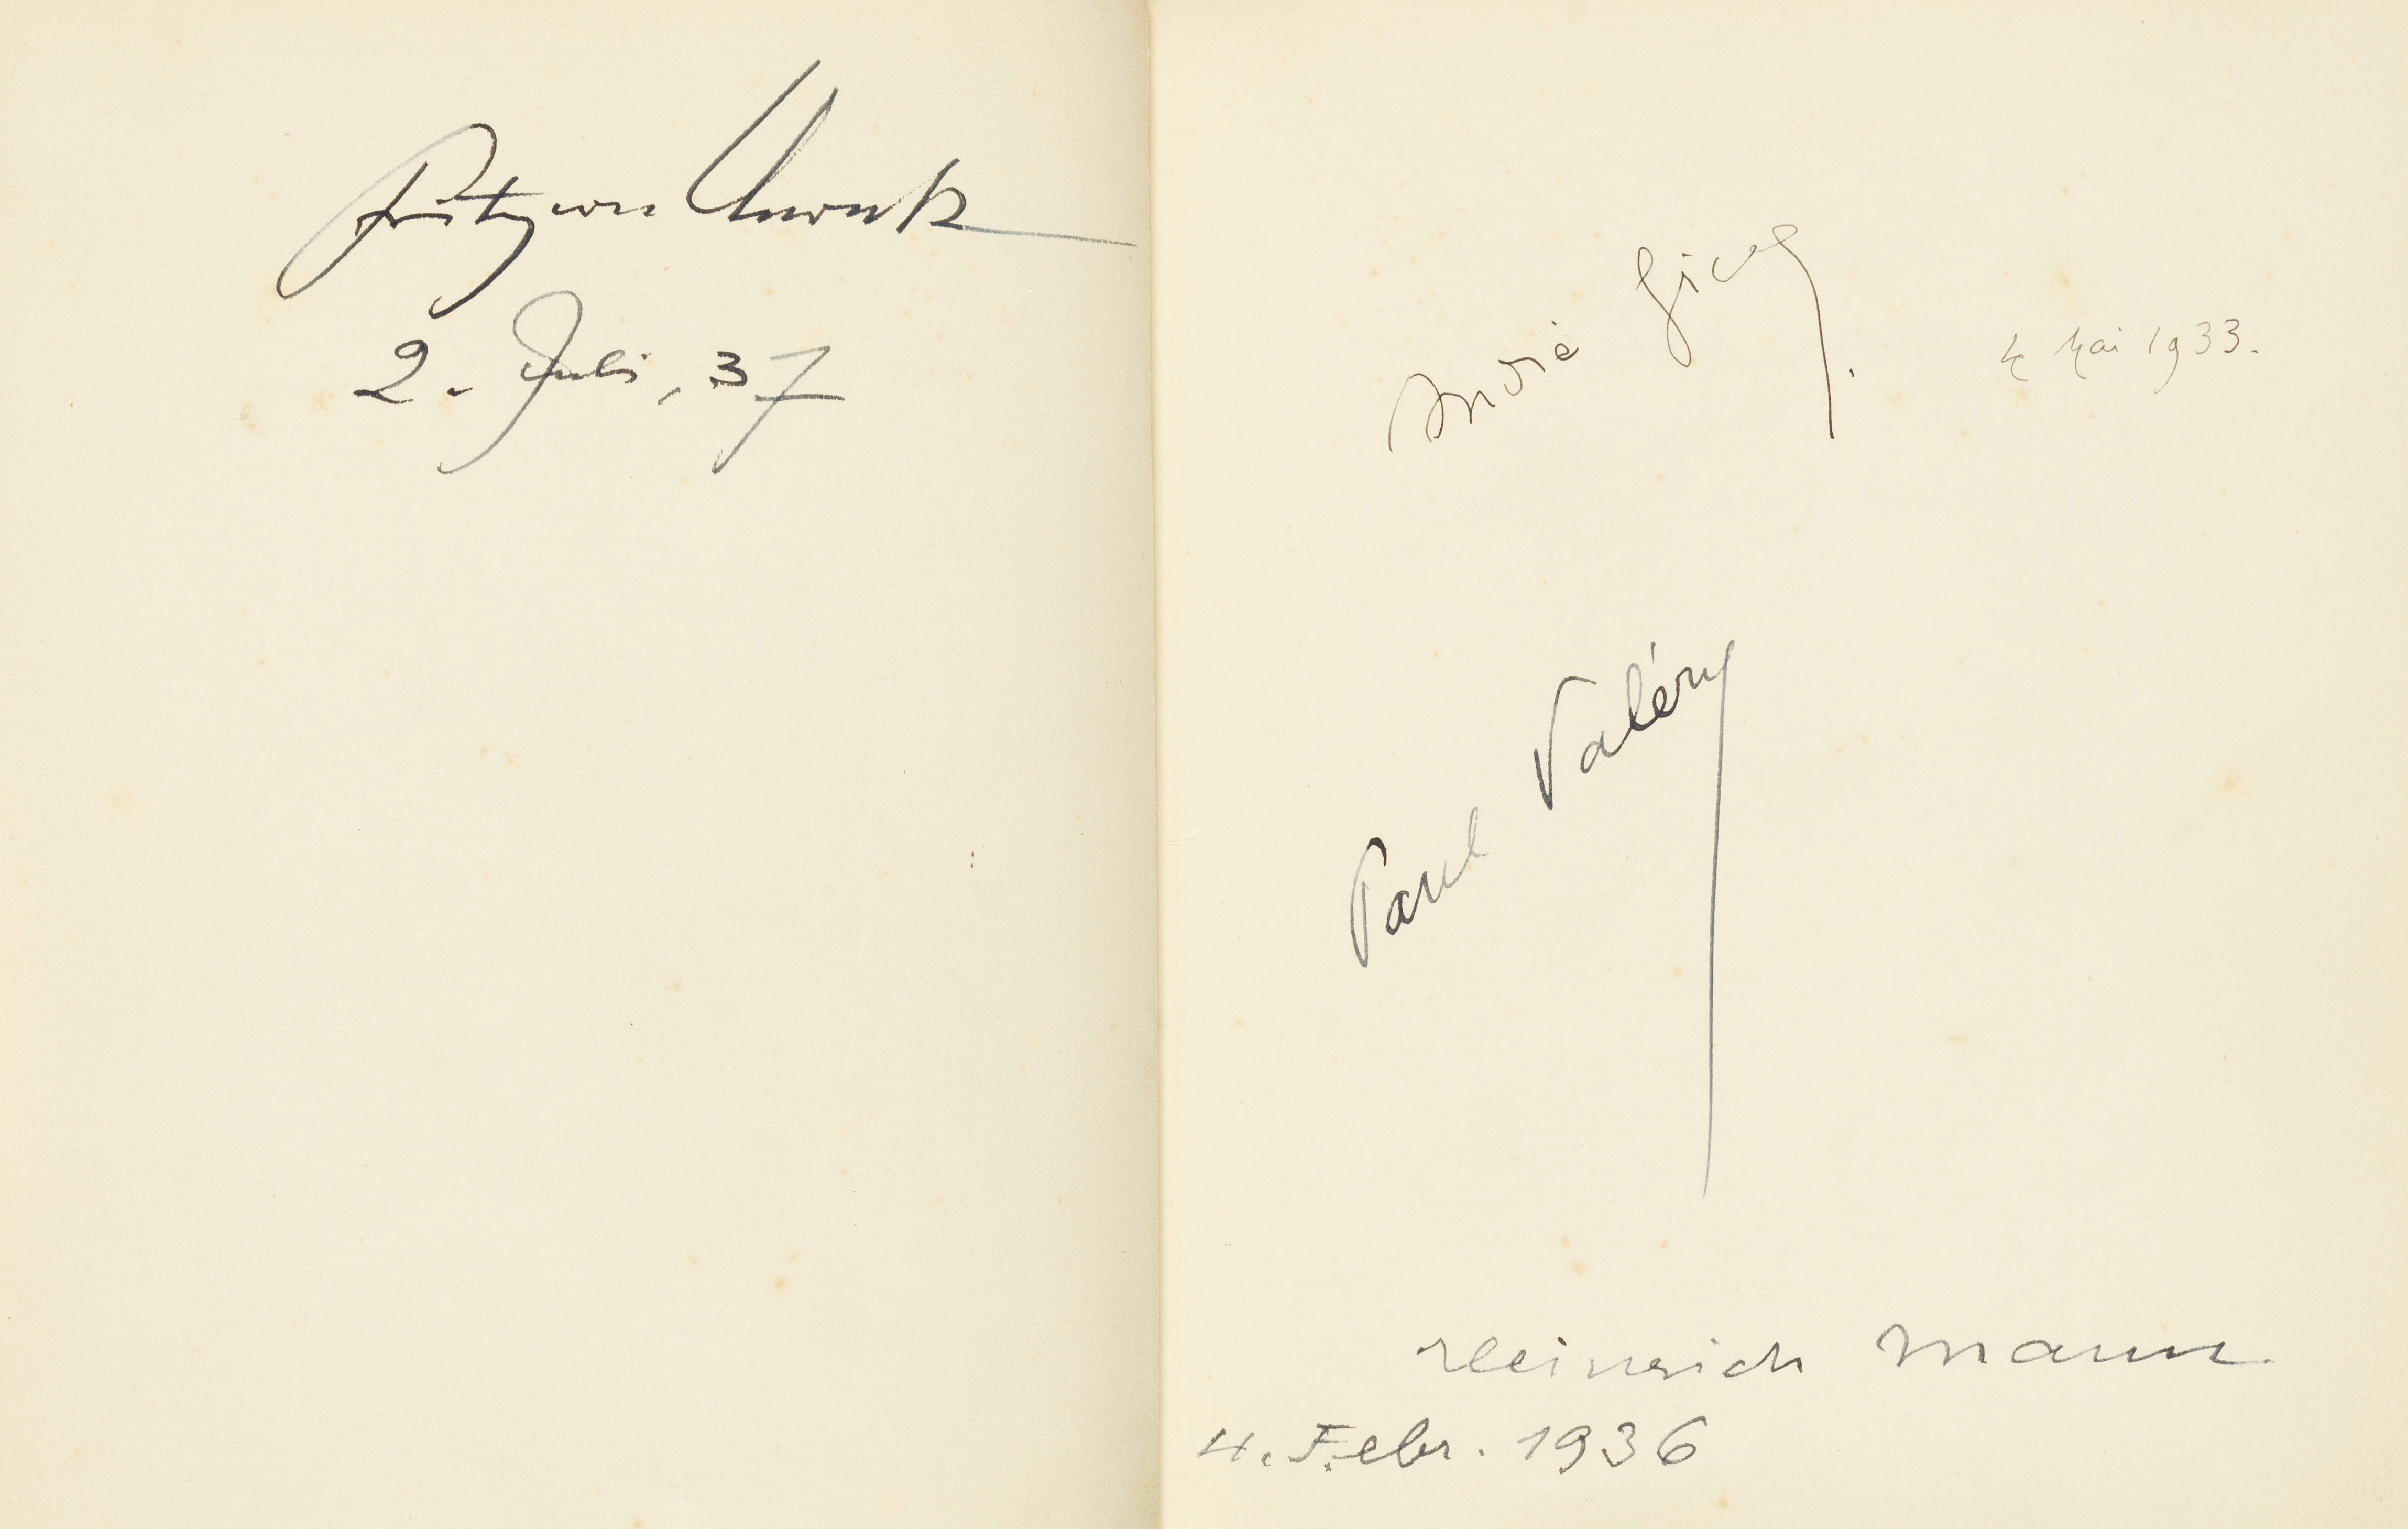 Fritz von Unruh
2. Juli, 37
André Gide.
4 Mai 1933.
Paul Valéry
Heinrich Mann.
4. Febr. 1936